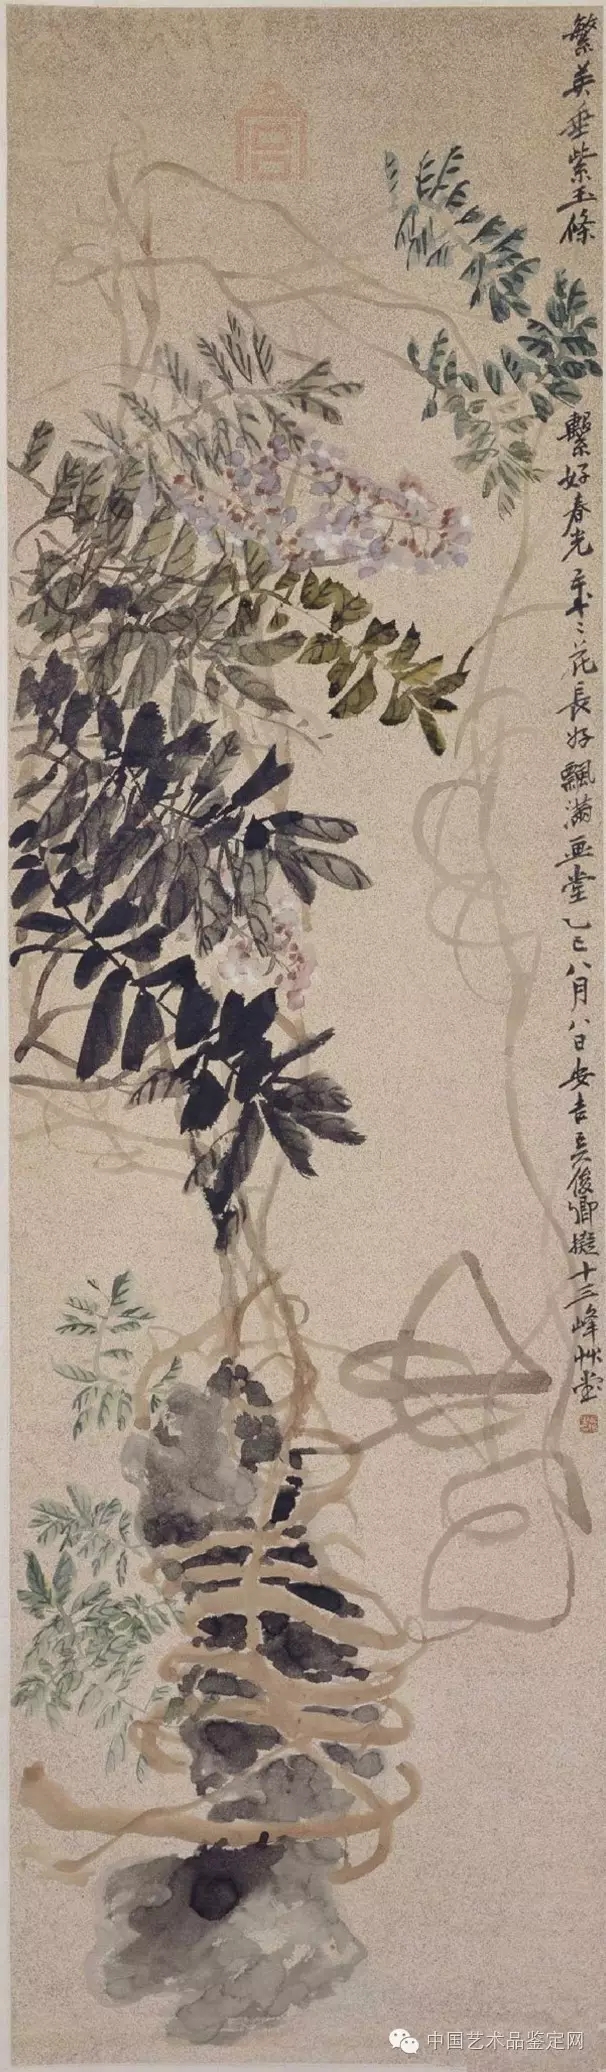 繁英垂紫玉條
繫好春光年〻花長好飄滿畫堂乙巳八月八日安吉吳俊卿擬十三峰艸堂
中国艺术品鉴定网